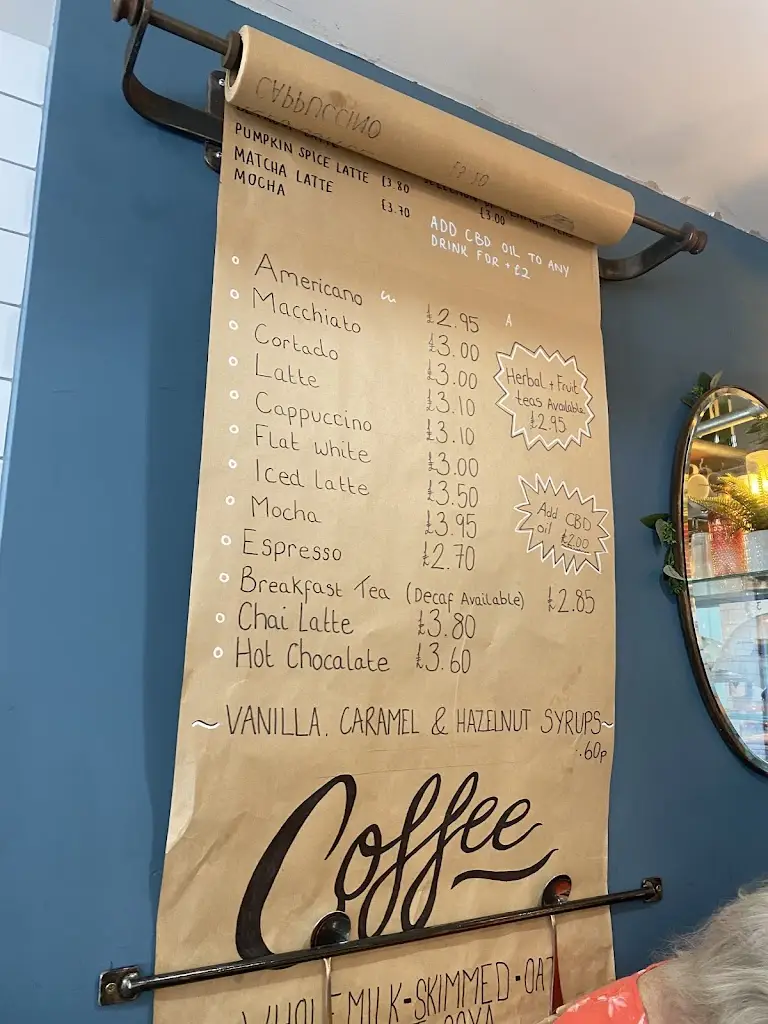 CAPPUCCINO
PUMPKIN SPICE LATTE £3.80
MATCHA LATTE £3.70
MOCHA
£3.00
ADD CBD OIL TO ANY
DRINK FOR +£2
Americano £2.95
Macchiato £3.00
Cortado £3.00
Latte £3.10
Cappuccino £3.10
Flat white £3.00
Iced latte £3.50
Mocha £3.95
Espresso £2.70
Breakfast Tea (Decaf Available) £2.85
Chai Latte £3.80
Hot Chocolate £3.60
A
Herbal + Fruit
teas Available
£2.95
Add CBD
oil £2.00
~VANILLA. CARAMEL & HAZELNUT SYRUPS~
.60p
Coffee
MILK-SKIMMED-OAT